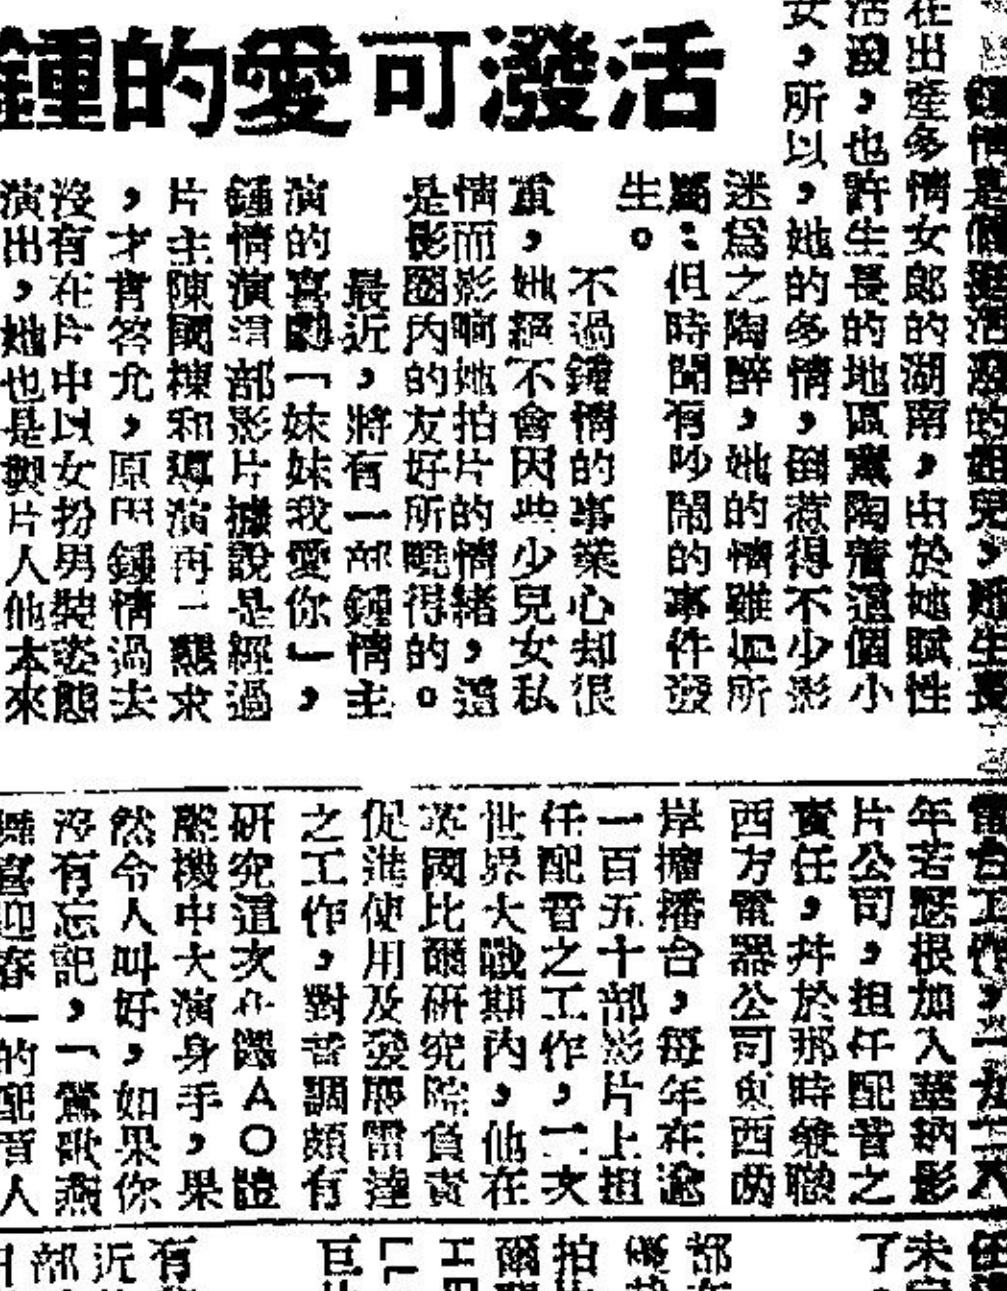 活潑可愛的鍾
是個挺活潑的妞兒，她生長
在出產多情女郎的湖南，由於她賦性
活潑，也許生長的地區薰陶着這個小
女，所以，她的多情，倒惹得不少影
迷爲之陶醉，她的情雖如所
屬：但時聞有吵鬧的事件發
生。
不過鍾情的事業心却很
重，她絕不會因些少兒女私
情而影响她拍片的情緒，這
是影圈內的友好所曉得的。
最近，將有一部鍾情主
演的喜劇「妹妹我愛你」，
鍾情演這部影片據說是經過
片主陳國棟和導演再三懇求
，才肯答允，原因鍾情過去
沒有在片中以女扮男裝姿態
演出，她也是與片人他本來
年若瑟根加入華納影
片公司，担任配音之
責任，并於那時候聯
西方電器公司與西两
岸擴播台，每年在逾
一百五十部影片上担
任配音之工作，二次
世界大戰期內，他在
英國比爾研究院負責
促進使用及發展雷達
之工作，對音調頗有
研究這次在 AO體
機中大演身手，果
然令人叫好，如果你
沒有忘記，「鶯歌燕
舞喜迎春」的配音人
未
了
部
拍
爾
工
巨
有
近
部